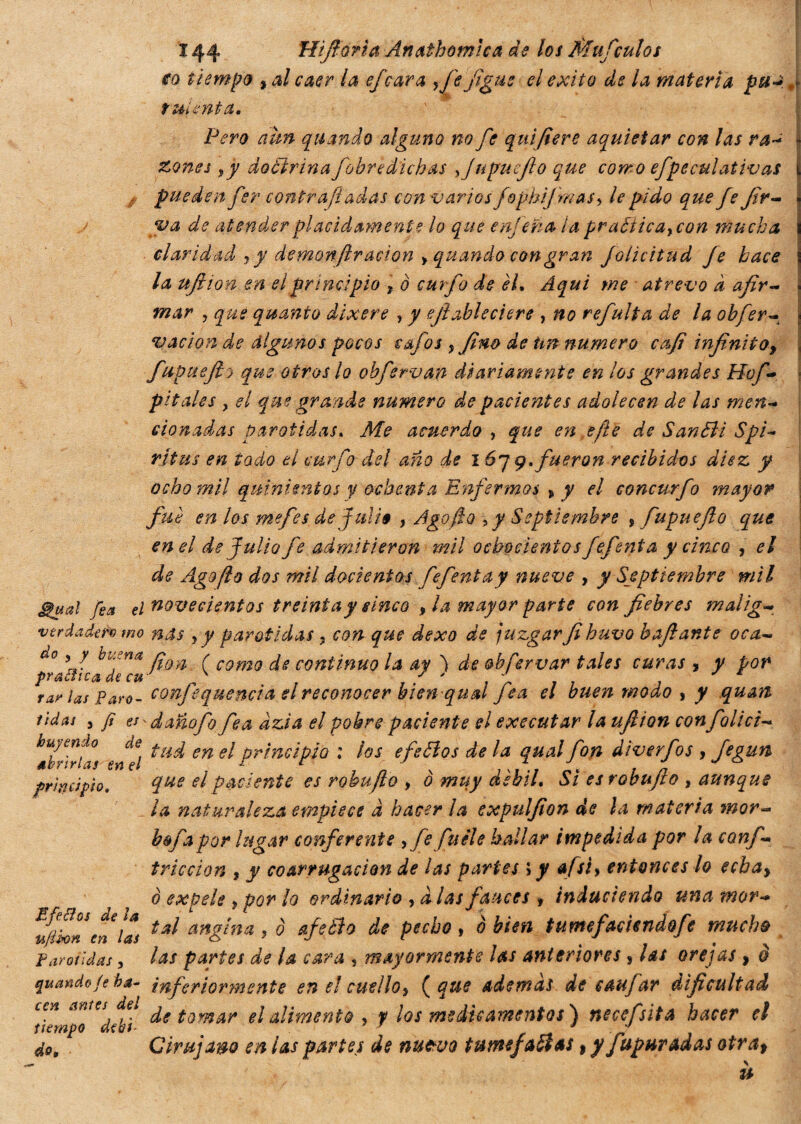 144 Hiſtoria Anathomica de los Muſculos
co tiempo, al caer la eſcara, ſe ſigue el exito de la materia pu-
rulenta.
Pero aùn quando alguno no ſe quiſiere aquietar con las ra-
zones, y doctrina ſobredichas, ſupueſto que como eſpeculativas
pueden ſer contraſtadas con varios ſophiſmas, le pido que ſe ſir-
va de atender placidamente lo que enſeña la practica, con mucha
claridad, y demonſtracion, quando con gran ſolicitud ſe hace
la uſtion en el principio, ò curſo de èl. Aqui me atrevo à afir-
mar, que quanto dixere, y eſtableciere, no reſulta de la obſer-
vacion de algunos pocos caſos, ſino de un numero caſi infinito,
ſupueſto que otros lo obſervan diariamente en los grandes Hoſ-
pitales, el que grande numero de pacientes adolecen de las men-
cionadas parotidas. Me acuerdo, que en eſte de Sancti Spi-
ritus en todo el curſo del año de 1679. fueron recibidos diez y
ocho mil quinientos y ochenta Enfermos, y el concurſo mayor
fuè en los meſes de Julio, Agoſto, y Septiembre, ſupueſto que
en el de Julio ſe admitieron mil ochocientos ſeſenta y cinco, el
de Agoſto dos mil docientos ſeſenta y nueve, y Septiembre mil
novecientos treinta y cinco, la mayor parte con fiebres malig-
nas, y parotidas, con que dexo de juzgar ſi huvo baſtante oca-
ſion (como de continuo la ay) de obſervar tales curas, y por
conſequencia el reconocer bien qual ſea el buen modo, y quan
dañoſo ſea àzia el pobre paciente el executar la uſtion con ſolici-
tud en el principio: los efectos de la qual ſon diverſos, ſegun
que el paciente es robuſto, ò muy dèbil. Si es robuſto, aunque
la naturaleza empiece à hacer la expulſion de la materia mor-
boſa por lugar conferente, ſe ſuele hallar impedida por la conſ-
triccion, y coarrugacion de las partes; y aſsi, entonces lo echa,
ò expele, por lo ordinario, à las fauces, induciendo una mor-
tal angina, ò afecto de pecho, ò bien tumefaciendoſe mucho
las partes de la cara, mayormente las anteriores, las orejas, ò
inferiormente en el cuello, (que ademàs de cauſar dificultad
de tomar el alimento, y los medicamentos) neceſsita hacer el
Cirujano en las partes de nuevo tumefactas, y ſupuradas otra,
u
Qual ſea el
verdadero mo
do, y buena
practica de cu
rar las Paro-
tidas, ſi es
huyendo de
abrirlas en el
principio.
Efectos de la
uſtion en las
Parotidas,
quando ſe ha-
cen antes del
tiempo debi-
do.